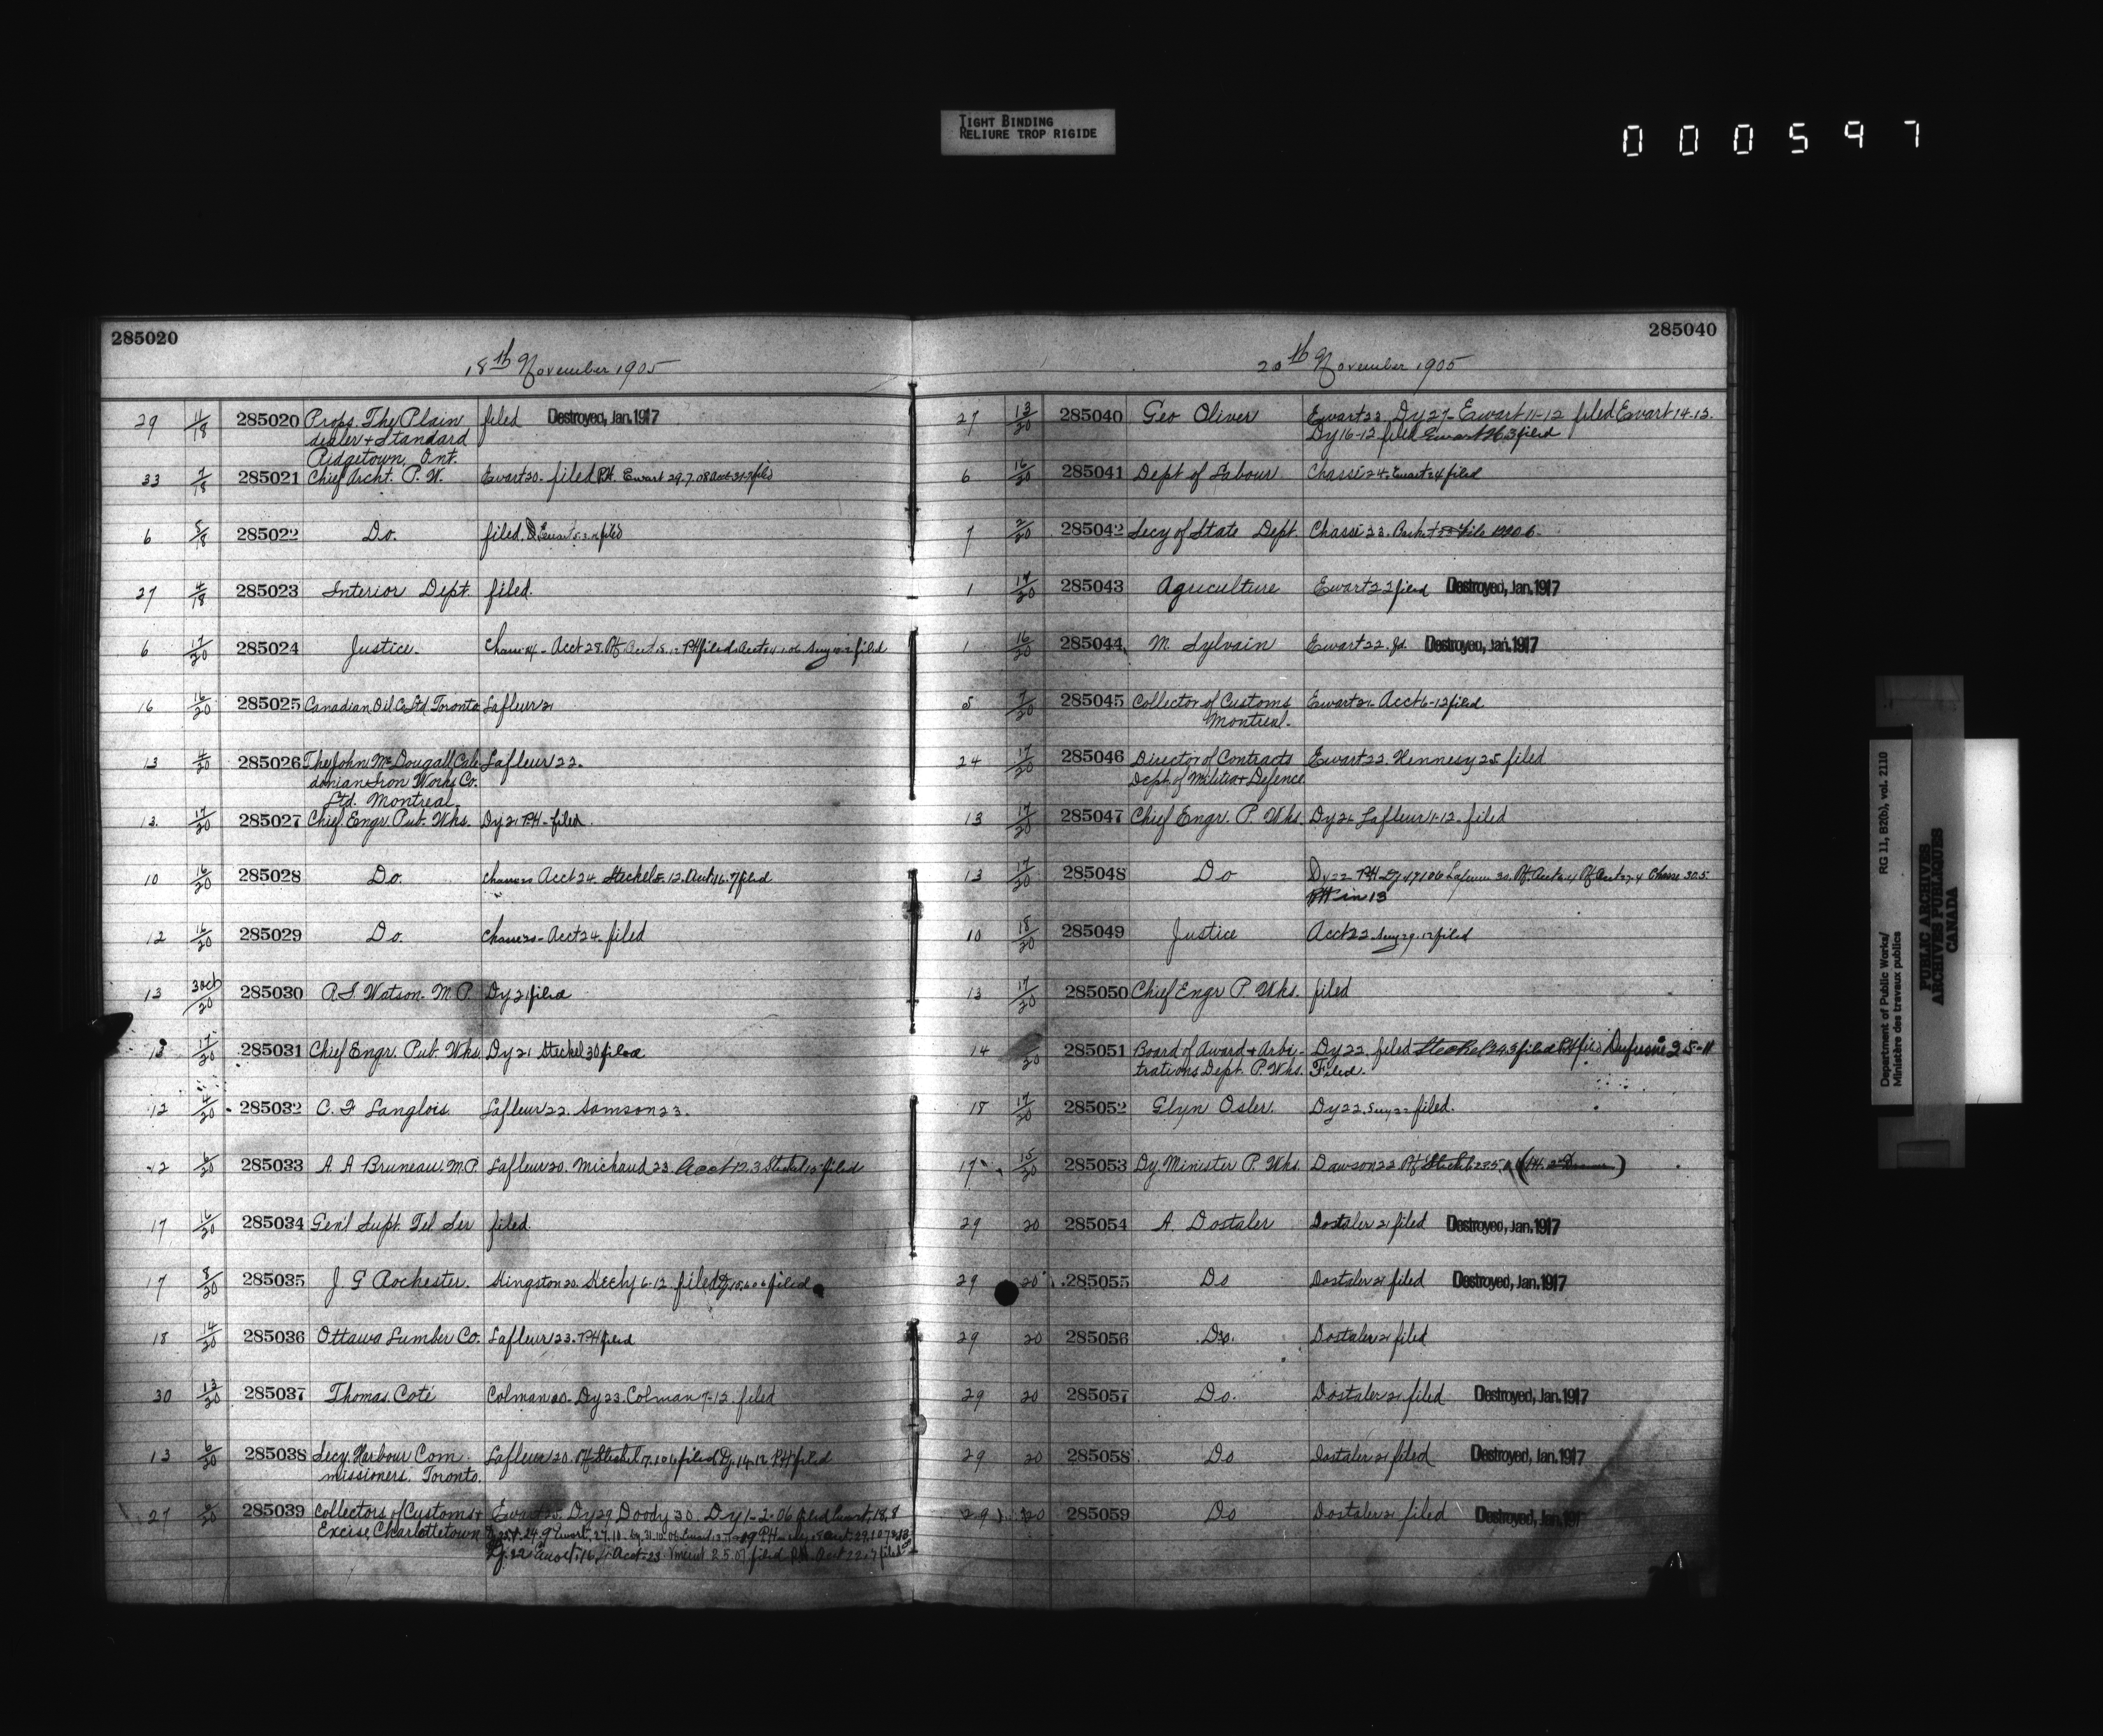 TIGHT BINDING
RELIURE TROP RIGIDE
000597
285020
18th November 1905
29 11/18 285020 Props. The Plain filed Destroyed, Jan. 1917
dealer & Standard
Ridgetown, Ont.
33 7/18 285021 Chief Archt. P. W. Ewart 20. filed P.H. Ewart 29.7.08
6 5/18 285022 Do. filed.
27 4/18 285023 Interior Dept. filed.
6 17/20 285024 Justice. Acct 28. filed
16 16/20 285025 Canadian Oil Co Ltd Toronto Lafleur 21
13 4/20 285026 The John McDougall Cale Lafleur 22.
donian Iron Works Co.
Ltd. Montreal.
13. 17/20 285027 Chief Engr. Pub. Wks. Dy 21 P.H - filed.
10 16/20 285028 Do. Acct 24. Steckel 5-12. filed
12 16/20 285029 Do. Acct 24. filed
13 3 Oct/20 285030 A. S. Watson M. P. Dy 21 filed
13 17/20 285031 Chief Engr. Pub. Wks. Dy 21 Steckel 30 filed
12 4/20 285032 C. F Langlois Lafleur 22. Samson 23.
12 6/20 285033 A. A Bruneau. M.P. Lafleur 20. Michaud 23. Acct 12.3 filed
17 16/20 285034 Gen'l Supt. Tel Ser filed.
17 8/20 285035 J. G Rochester. Kingston 20. 6-12. filed filed
18 14/20 285036 Ottawa Lumber Co. Lafleur 23. P.H filed
30 13/20 285037 Thomas Coté Colman 20. Dy 23. Colman 7-12. filed
13 6/20 285038 Secy. Harbour Com Lafleur 20. filed Dy. 14-12 P.H filed
missioners. Toronto.
27 285039 Collectors of Customs & Ewart 25. Dy 29 Doody 30. Dy 1-2-06 filed
Excise, Charlottetown
285040
20th November 1905
27 13/20 285040 Geo Oliver Ewart 23 Dy 27- Ewart 11-12 filed Ewart 14-12.
Dy 16-12 filed Ewart filed
6 16/20 285041 Dept of Labour Chassé 24. Ewart 24 filed
7 2/20 285042 Secy of State Dept. Chassé 23.
1 17/20 285043 Agriculture Ewart 22 filed Destroyed, Jan. 1917
1 16/20 285044 M. Sylvain Ewart 22. fd. Destroyed, Jan. 1917
5 7/20 285045 Collector of Customs Ewart 21. Acct 6-12 filed
Montreal.
24 17/20 285046 Director of Contracts Ewart 22. Hennesy 25 filed
Dept. of Militia & Defence
13 17/20 285047 Chief Engr. P. Wks. Lafleur 1-12. filed
13 17/20 285048 Do Dy 22 P.H
P.H in 13
10 18/20 285049 Justice Acct 22 filed
13 17/20 285050 Chief Engr P. Wks. filed
14 20 285051 Board of Award & Arbi- Dy 22. filed Steckel filed P.H filed
trations Dept. P. Wks. Filed.
18 17/20 285052 Glyn Osler. Dy 22. filed.
17 15/20 285053 Dy. Minister P. Wks. Dawson 22
29 20 285054 A. Dostaler Dostaler 21 filed Destroyed, Jan. 1917
29 20 285055 Do Dostaler 21 filed Destroyed, Jan. 1917
29 20 285056 Do. Dostaler 21 filed
29 20 285057 Do. Dostaler 21 filed Destroyed, Jan. 1917
29 20 285058 Do Dostaler 21 filed Destroyed, Jan. 1917
29 20 285059 Do Dostaler 21 filed Destroyed, Jan. 1917
Department of Public Works/ RG 11, B2(b), vol. 2110
Ministère des travaux publics
PUBLIC ARCHIVES
ARCHIVES PUBLIQUES
CANADA